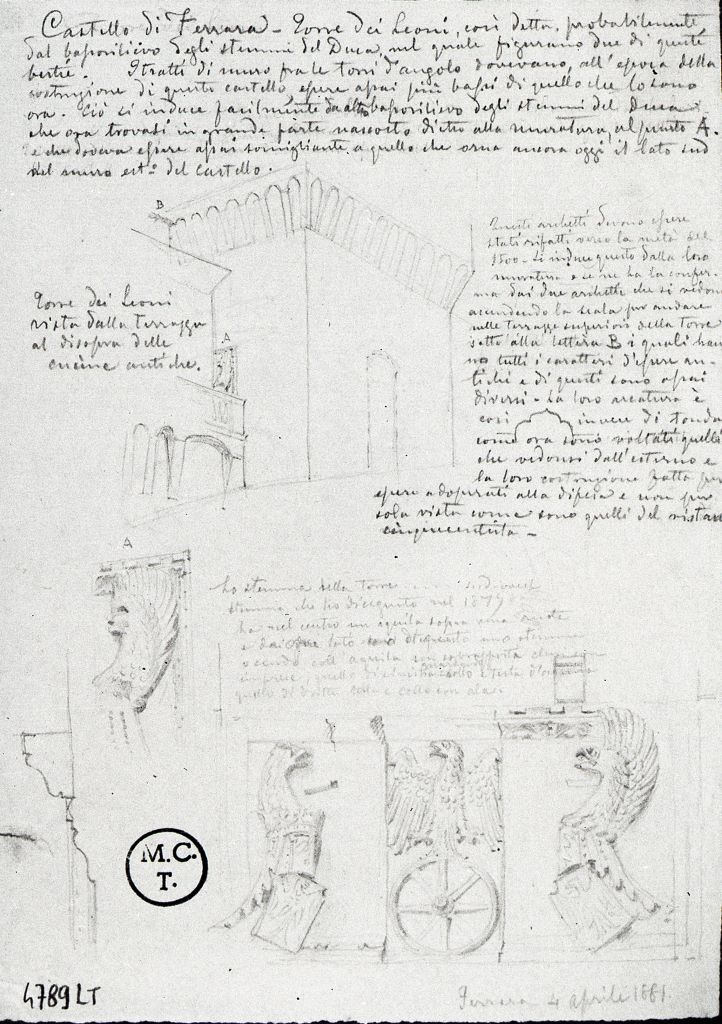 Castello di Ferrara - Torre dei Leoni, così detta, probabilmente
dal bassorilievo degli stemmi del Duca, nel quale figurano due di queste
bestie. I tratti di muro fra le torri d'angolo dovevano, all'epoca della
costruzione di questo castello essere assai più bassi di quello che lo sono
ora. Ciò si induce facilmente da altro bassorilievo degli stemmi del Duca
che ora trovasi in grande parte nascosto dietro alla muratura, al punto A.
e che doveva essere assai somigliante a quello che orna ancora oggi il lato sud
del muro est.º del castello.
B
Questi archetti devono essere
stati rifatti verso la metà del
1500 - Si induce questo dalla loro
muratura e se ne ha la confer-
ma dai due archetti che si vedono
ascendendo la scala per andare
nelle terrazze superiori della torre
sotto alla lettera B i quali han
no tutti i caratteri d'essere an-
tichi e di questi sono assai
diversi - La loro arcatura è
così invece di tonda
come ora sono voltati quelli
che vedonsi dall'esterno e
la loro costruzione fatta per
essere adoperati alla difesa e non per
sola vista come sono quelli del ristauro
cinquecentista -
Torre dei Leoni
vista dalla terrazza
al disopra delle
cucine antiche.
A
A
Lo stemma della torre
stemma che ho disegnato nel 1879
ha nel centro un aquila sopra una ruota
e dai due lati
M.C.
T.
4789 LT
Ferrara 4 aprile 1881.